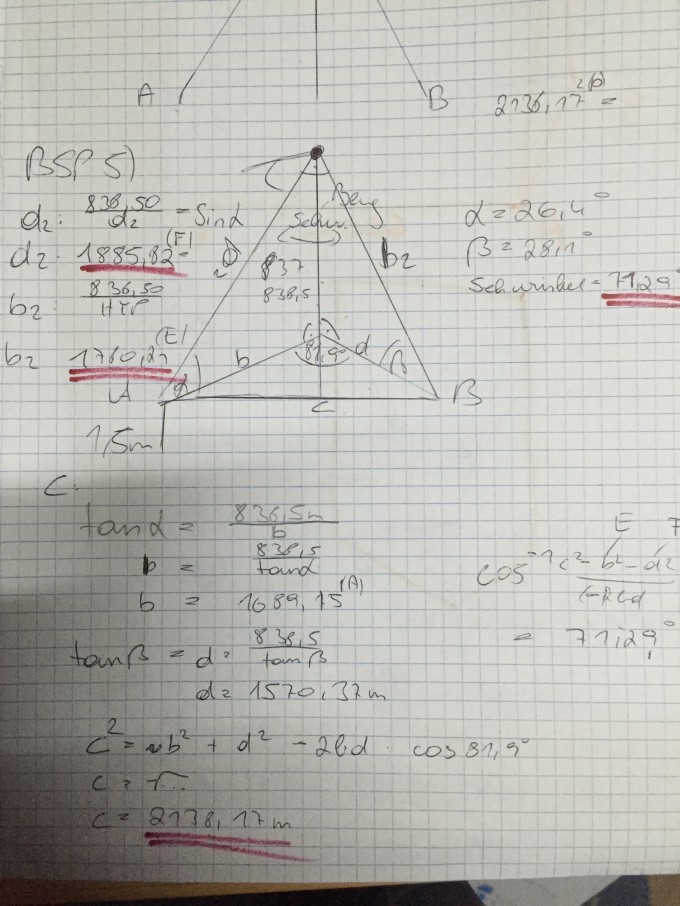 A
B
2136,17² =
BSP 5)
d2: 838,50 / d2 = Sind
d2: 1885,82 (F)
b2: 836,50 / HYP
b2 1760,27 (E)
Berg
837
838,5
b2
α = 26,4°
β = 28,1°
Schwinkel = 71,29°
b
81,9°
d
β
A
C
B
1,5m
C:
tan α = 836,5m / b
b = 838,5 / tan α
b = 1689,15 (A)
tan β = d = 838,5 / tan β
d = 1570,37 m
c² = b² + d² - 2bd · cos 81,9°
c = √...
c = 2138,17 m
E 7
cos⁻¹ c² - b² - d² / (-2cd
= 71,29°